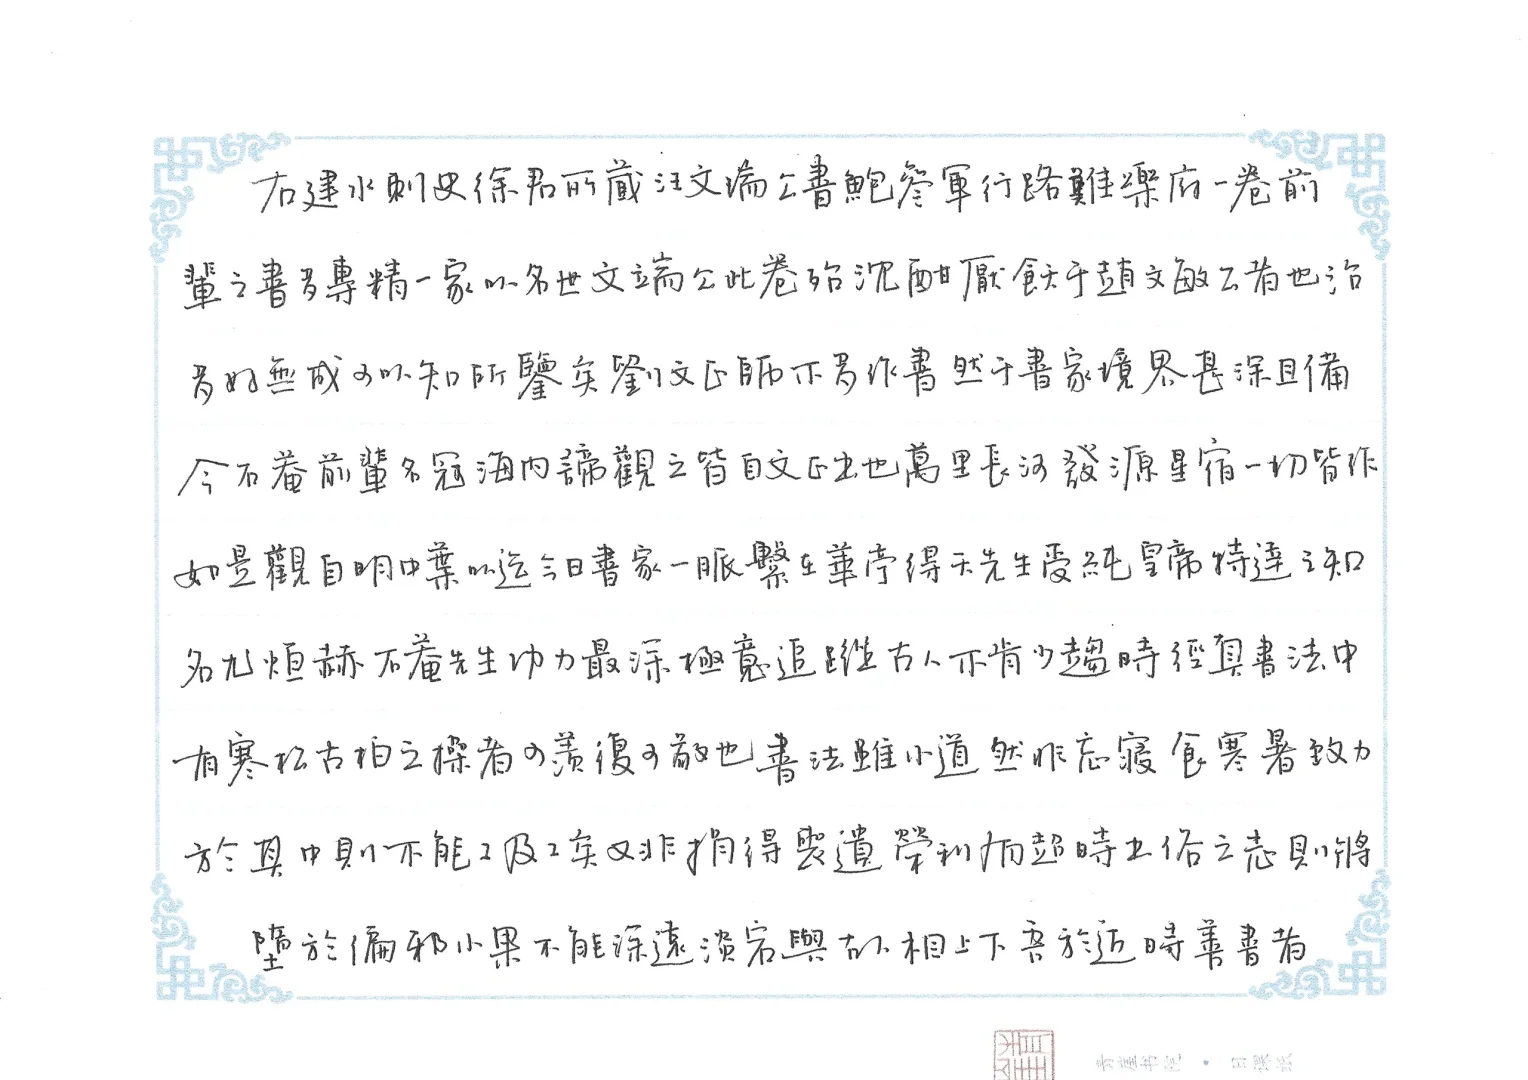 右建水刺史徐君所藏汪文端公書鮑參軍行路難樂府一卷前
輩之書多專精一家以名世文端公此卷殆沈酣厭飫于趙文敏公者也治
多好無成可以知所鑒矣劉文正師不多作書然于書家境界甚深且備
今石菴前輩名冠海內諦觀之皆自文正出也萬里長河發源星宿一切皆作
如是觀自明中葉以迄今日書家一脈繫在華亭得天先生受純皇帝特達之知
名尤烜赫石菴先生功力最深極意追蹤古人不肯少趨時徑真書法中
有寒松古柏之操者可羨復可敬也書法雖小道然非忘寢食寒暑致力
於其中則不能工及工矣又非捐得喪遺榮利而超時出俗之志則將
墮於偏邪小果不能深遠淡宕與古人相上下吾於近時善書者
青崖书院・日課紙